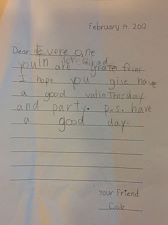 February 14, 202
Dear Everyone
you are great frien
I hope you give have
a good valintinesday
and party. P.S. have
a good day.
Your Friend